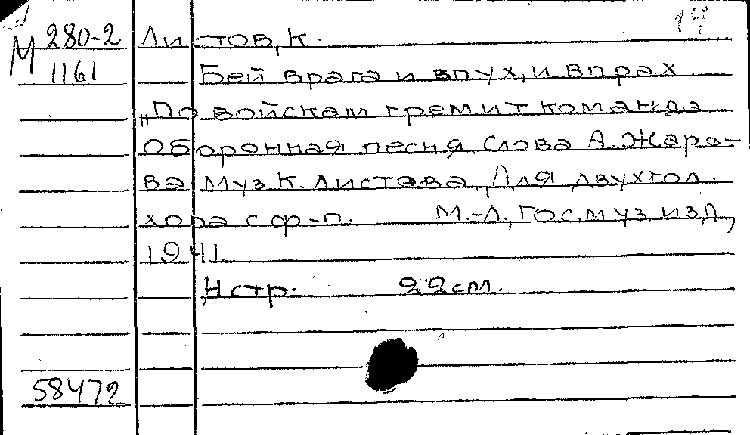 М 280-2 Листов, К.
1161 Бей врага и впух, и впрах
„По войскам гремит команда
Оборонная песня Слова А. Жаро-
ва Муз. К. Листова, Для двухгол.
хора с ф-п. М.-Л., Гос. муз. изд,
1941
4 стр. 22 см.
58472